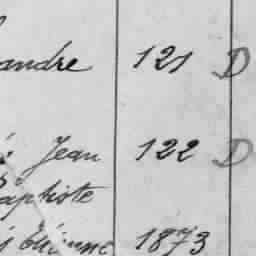 andre 121 D
Jean 122 D
aptiste
Etienne 1873